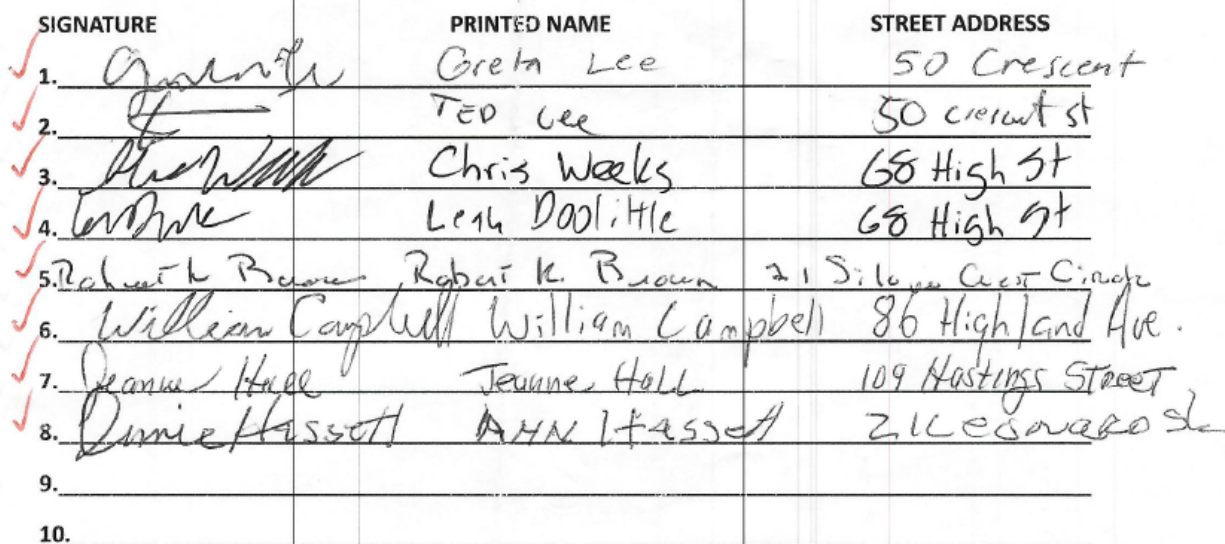 SIGNATURE PRINTED NAME STREET ADDRESS
1. Greta Lee 50 Crescent
2. TED Lee 50 crescent st
3. Chris Weeks 68 High St
4. Leah Doolittle 68 High St
5. Robert K. Brown Robert K. Brown 21 Circle
6. William Campbell William Campbell 86 Highland Ave.
7. Jeanne Hall Jeanne Hall 109 Hastings STREET
8. Hassett ANN Hassett
9.
10.